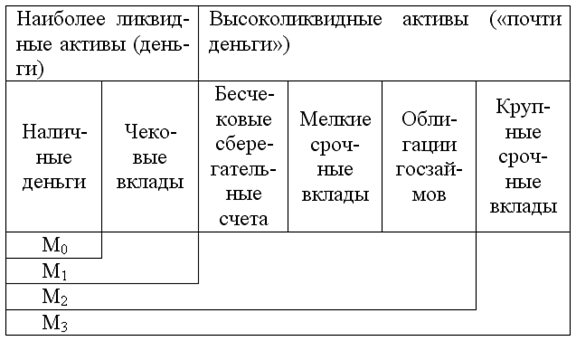 Наиболее ликвид-
ные активы (день-
ги)
Высоколиквидные активы («почти
деньги»)
Налич-
ные
деньги
Чеко-
вые
вклады
Бесче-
ковые
сбере-
гатель-
ные
счета
Мелкие
сроч-
ные
вклады
Обли-
гации
госзай-
мов
Круп-
ные
сроч-
ные
вклады
М₀
М₁
М₂
М₃